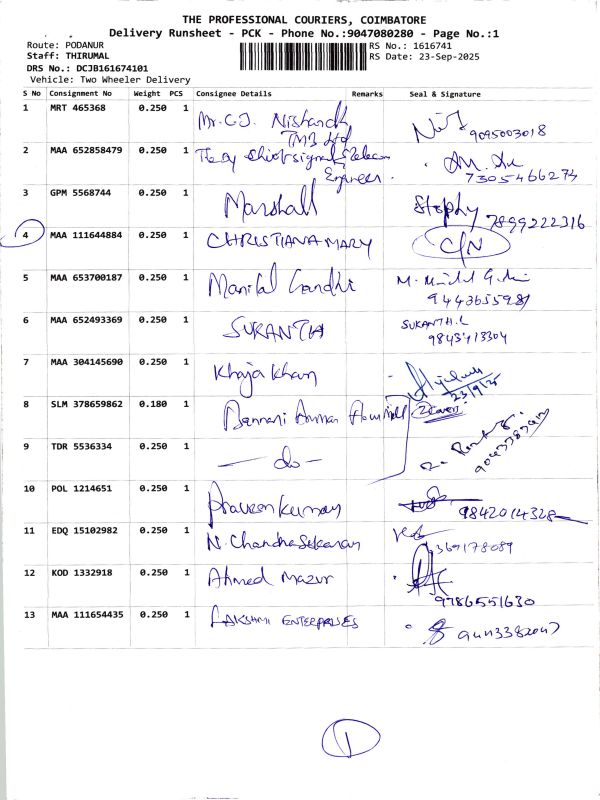 THE PROFESSIONAL COURIERS, COIMBATORE
Delivery Runsheet - PCK - Phone No.:9047080280 - Page No.:1
Route: PODANUR
Staff: THIRUMAL
DRS No.: DCJB161674101
Vehicle: Two Wheeler Delivery
RS No.: 1616741
RS Date: 23-Sep-2025
S No Consignment No Weight PCS Consignee Details Remarks Seal & Signature
1 MRT 465368 0.250 1 Mr. C.J. Nishandh TMB Ltd 9095003018
2 MAA 652858479 0.250 1 The Dy Chief signal & Telecom Engineer. 7305466274
3 GPM 5568744 0.250 1 Marshall Stephy 7899222316
4 MAA 111644884 0.250 1 CHRISTIANA MARY C/N
5 MAA 653700187 0.250 1 Manilal Gandhi 9443655981
6 MAA 652493369 0.250 1 SUKANTH SUKANTH.L 9843413304
7 MAA 304145690 0.250 1 Khaja khan 23/9/25
8 SLM 378659862 0.180 1 Bannari Amman 2 Cover
9 TDR 5536334 0.250 1 — do —
10 POL 1214651 0.250 1 Praveen kumar 9842014328
11 EDQ 15102982 0.250 1 N. Chandrasekaran
12 KOD 1332918 0.250 1 Ahmed Mazur 9786551630
13 MAA 111654435 0.250 1 LAKSHMI ENTERPRISES
1